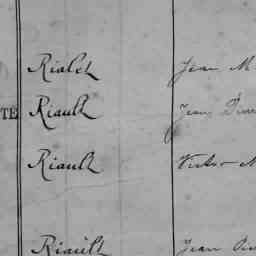 Rialet Jean M
TE Riault Jean
Riault Victor M
Riault Jean